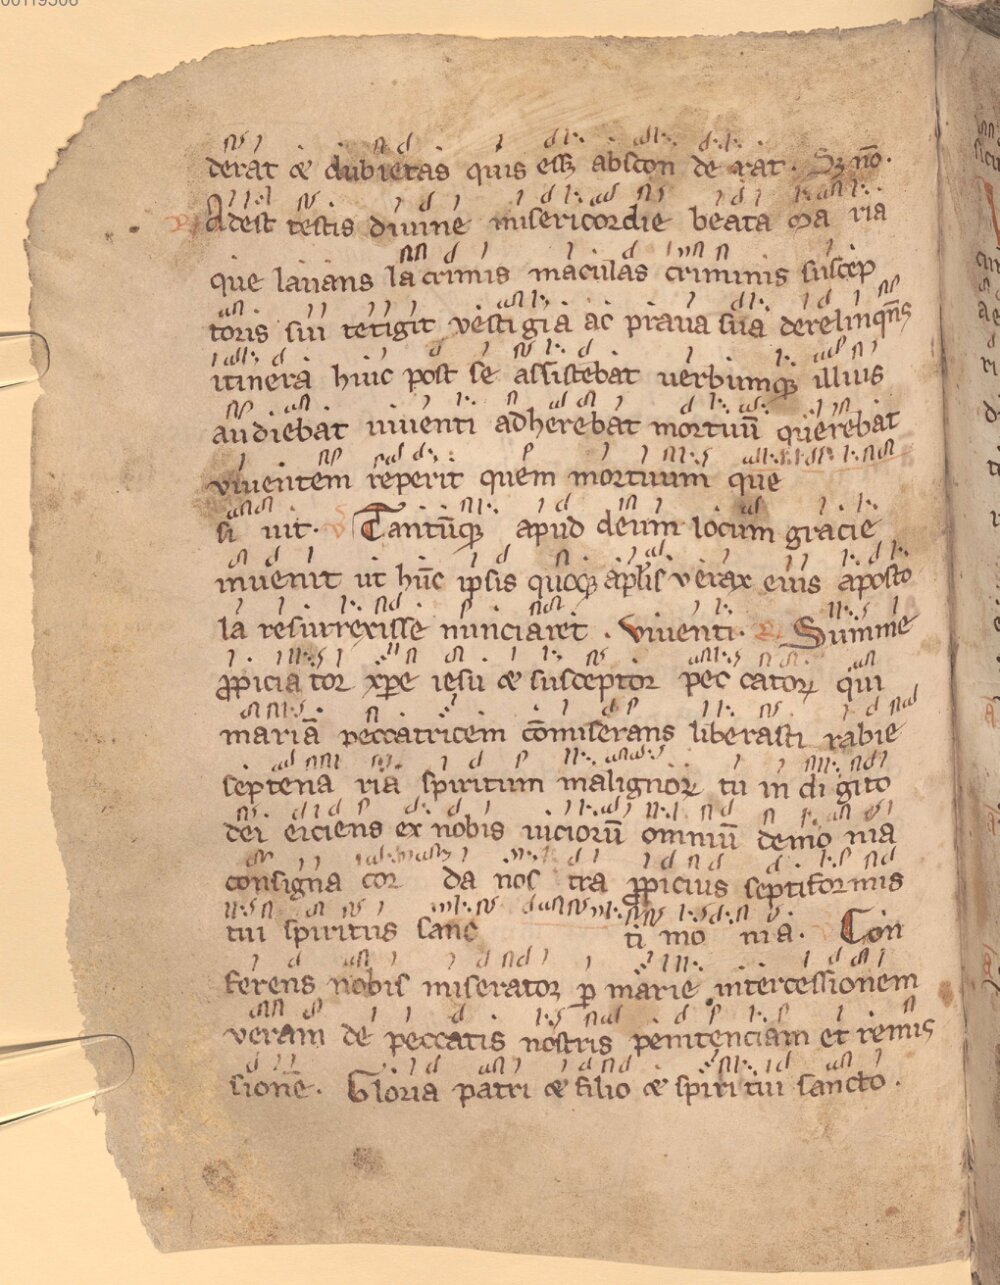 derat ⁊ dubietas quis esset abscon de rat. Sȝ nō.
R Adest testis divine misericordie beata ma ria
que lavans lacrimis maculas criminis suscep
toris sui tetigit vestigia ac prava sua derelinqn̄s
itinera huic post se assistebat verbumqȝ illius
audiebat viventi adherebat mortuū querebat
viventem reperit quem mortuum que
si vit. V Tantūqȝ apud deum locum gracie
invenit ut hūc ipsis quoqȝ apl̄is verax eius aposto
la resurrexisse nunciaret. Viventi. R Summe
ꝓpiciator xp̄e iesu ⁊ susceptor pec catoꝝ qui
mariā peccatricem cōmiserans liberasti rabie
septena ria spiritum malignoꝝ tu in digito
dei eiciens ex nobis viciorū omniū demo nia
consigna cor da nos tra ꝓpicius septiformis
tui spiritus sanc ti mo nia. Con
ferens nobis miserator ꝑ marie intercessionem
veram de peccatis nostris penitenciam et remis
sionē. Gloria patri ⁊ filio ⁊ spiri tui sancto.